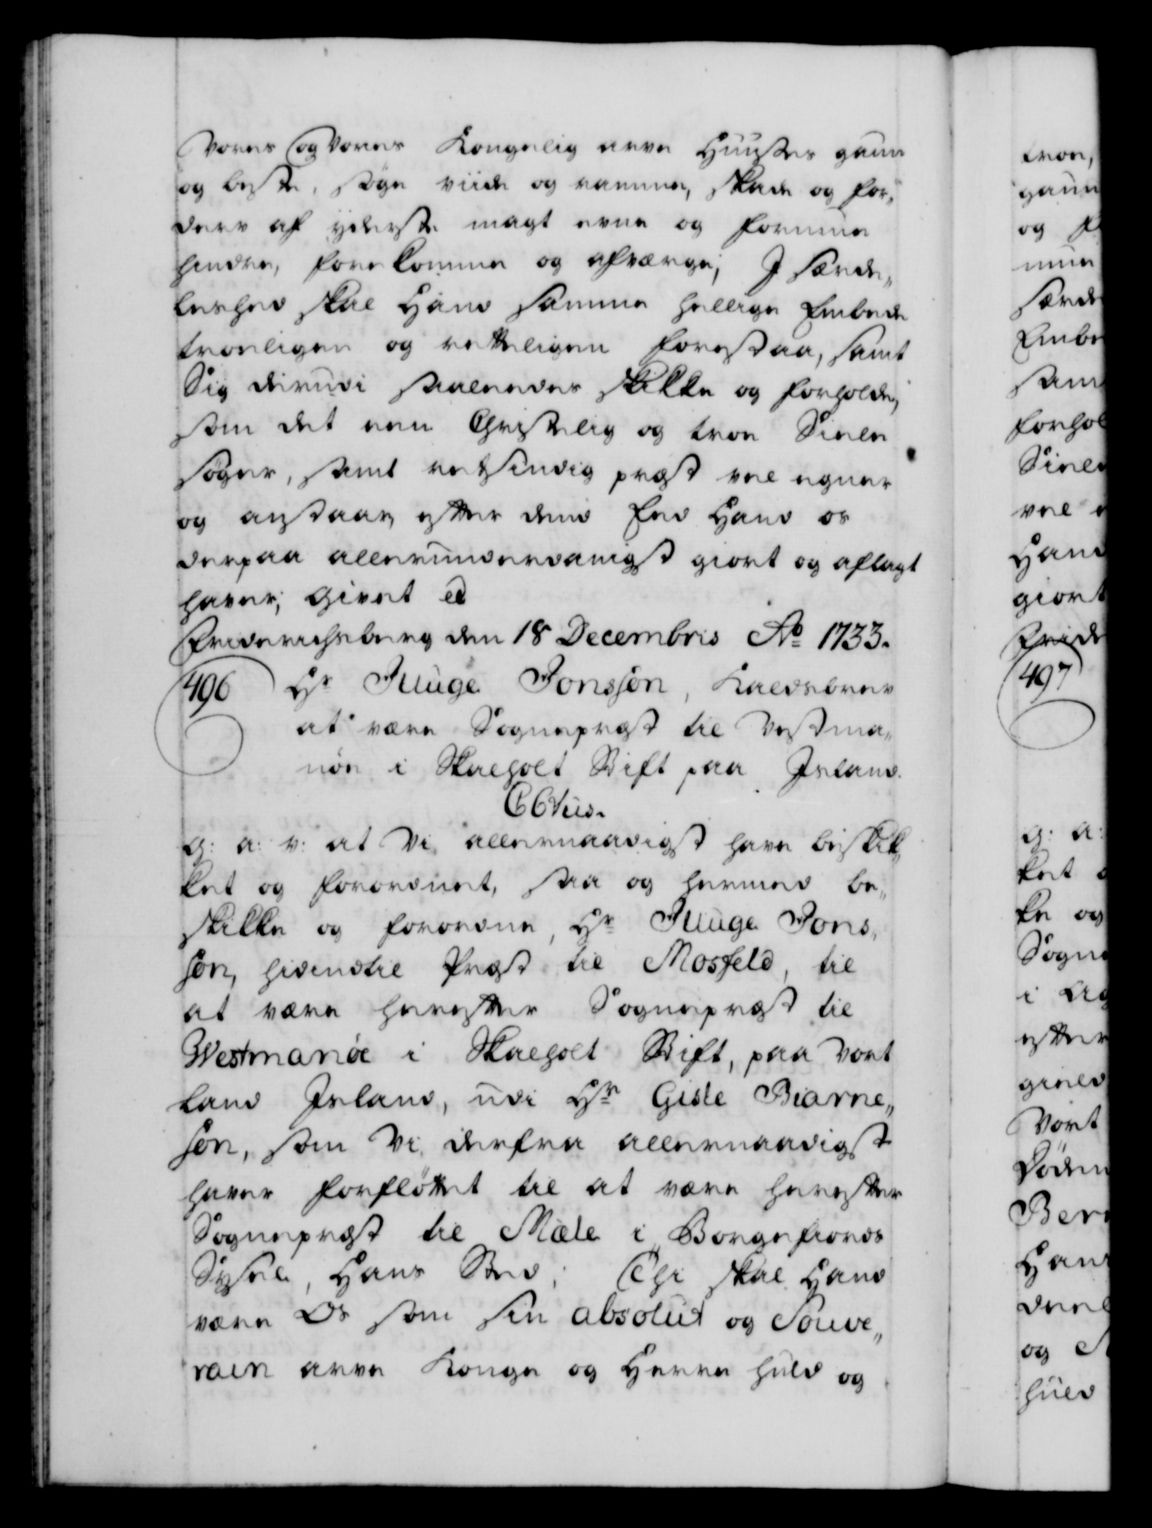 Vores og Vores Kongelig arve Huusses gaun
og beste, søge viide og ramme, skade og for„
derv af yderste magt evne og formue
hindre, forekomme og afværge; J særde„
leshed skal Hand samme hellige Embede
troeligen og retteligen forestaa, samt
Sig derudi saaledes skikke og forholde,
som det een Christelig og troe Siæle
søger, samt retsindig præst vel egner
og anstaar, efter dend Eed Hand os
derpaa allerunderdanigst giort og aflagt
haver; Givet ed
Friderichsberg den 18 Decembris Ao 1733.
496 Hr Illuge Jonssøn, Kaldsbrev
at være Sognepræst til Vestma„
nöe i Skalholt Stift paa Jsland.
C6tus.
G: a: v: at Vi allernaadigst have beskik„
ket og forordnet, saa og hermed be„
skikke og forordne, Hr Illuge Jons„
søn, hidindtil Præst til Mosfeld, til
at være herefter Sognepræst til
Westmanöe i Skalholt Stift, paa Vort
Land Jsland, udi Hr Gisle Biarne„
søn, som Vi derfra allernaadigst
haver forfløttet til at være herefter
Sognepræst til Mæle i Borgefiords
Syssel, Hans Sted; Thi skal Hand
være Os som sin absolut og Souve„
rain arve Konge og Herre huld og
troe,
gaun
og f
mue
særde
Embe
sam
forhol
Siæle
vel e
Hand
giort
Fride
497
g: a:
ket o
ke og
Sogne
i Ag
efter
gield
Vort
Døden
Bern
Hans
deel
og S
huld